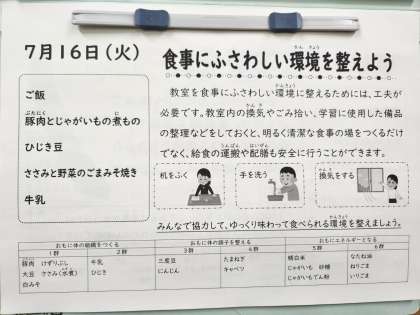 7月16日（火）
食事にふさわしい環境を整えよう
かんきょう
ご飯
ぶたにく に
豚肉とじゃがいもの煮もの
ひじき豆
ささみと野菜のごまみそ焼き
牛乳
かんきょう
教室を食事にふさわしい環境に整えるためには、工夫が
かんき
必要です。教室内の換気やごみ拾い、学習に使用した備品
の整理などをしておくと、明るく清潔な食事の場をつくるだけ
うんぱん はいぜん
でなく、給食の運搬や配膳も安全に行うことができます。
机をふく
手を洗う
かんき
換気をする
かんきょう
みんなで協力して、ゆっくり味わって食べられる環境を整えましょう。
おもに体の組織をつくる おもに体の調子を整える おもにエネルギーとなる
1群 2群 3群 4群 5群 6群
豚肉 けずりぶし 牛乳 三度豆 たまねぎ 精白米 なたね油
大豆 ささみ(水煮) ひじき にんじん キャベツ じゃがいも 砂糖 ねりごま
白みそ じゃがいもでん粉 いりごま